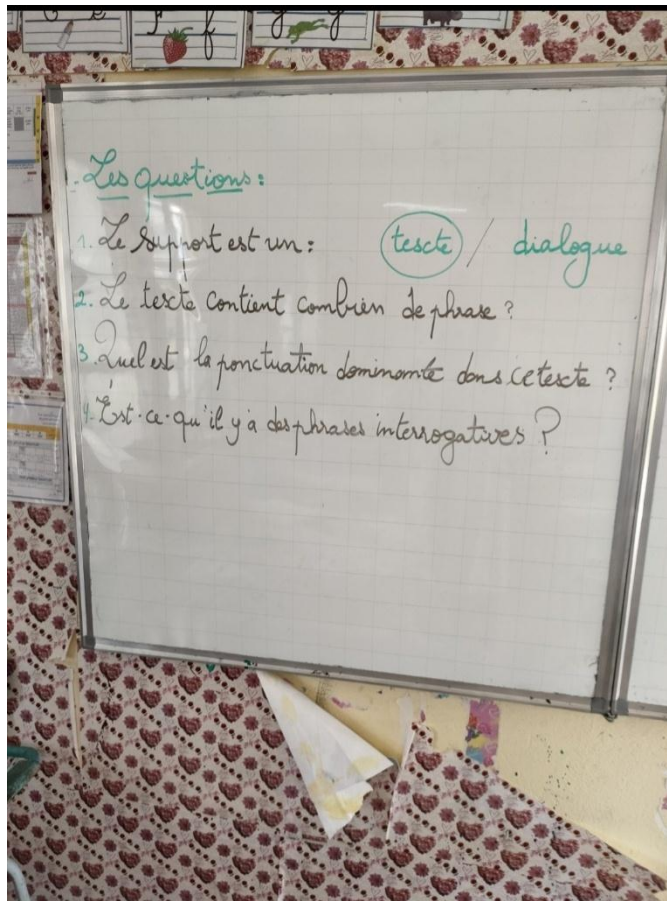 F f
g g
- Les questions :
1. Le support est un : texte / dialogue
2. Le texte contient combien de phrase ?
3. Quel est la ponctuation dominante dans ce texte ?
4. Est-ce-qu'il y'a des phrases interrogatives ?